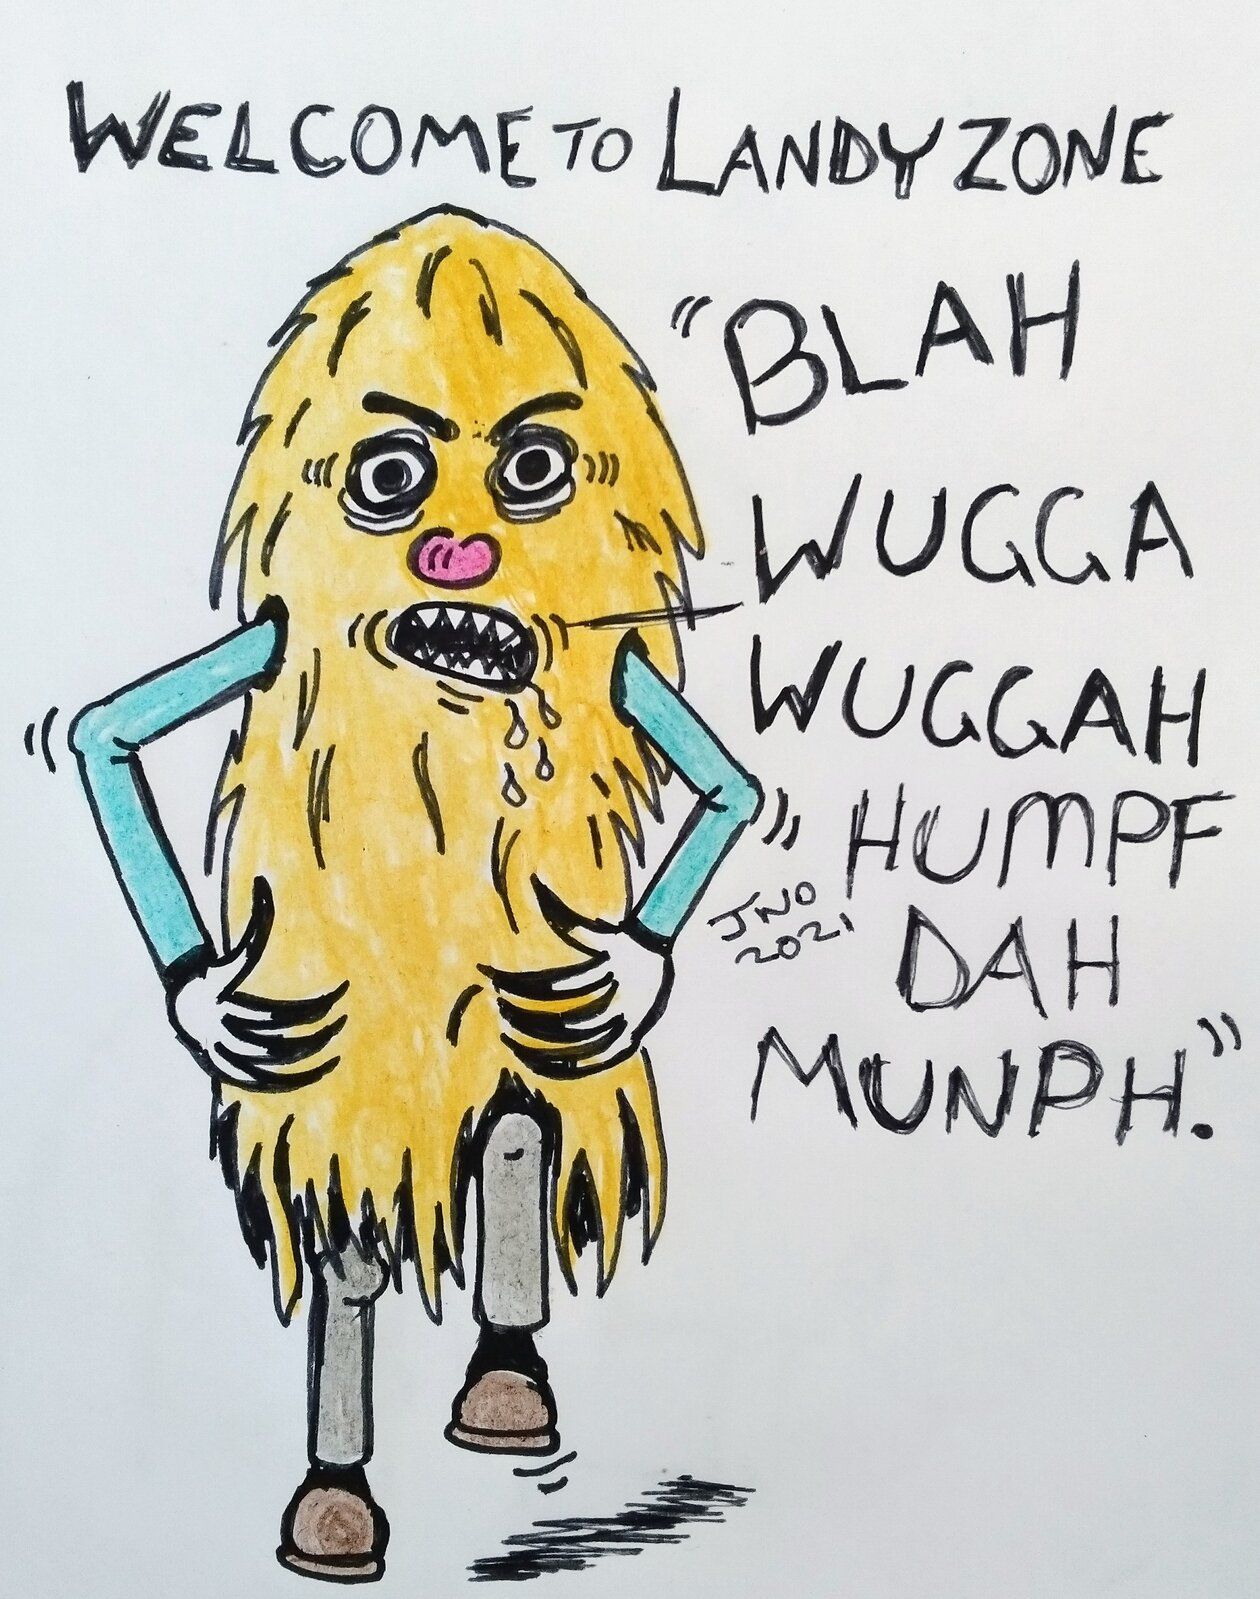 WELCOME TO LANDYZONE
"BLAH
WUGGA
WUGGAH
HUMPF
DAH
MUNPH."
JNO
2021